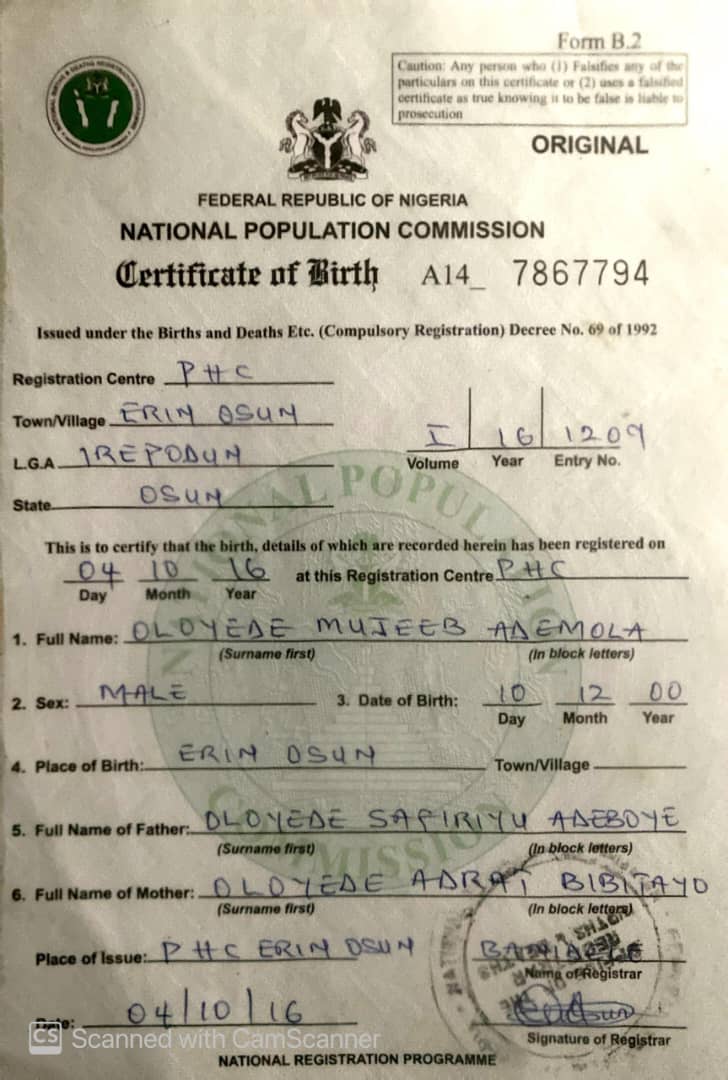 Form B.2
Caution: Any person who (1) Falsifies any of the
particulars on this certificate or (2) uses a falsified
certificate as true knowing it to be false is liable to
prosecution
ORIGINAL
FEDERAL REPUBLIC OF NIGERIA
NATIONAL POPULATION COMMISSION
Certificate of Birth A14_ 7867794
Issued under the Births and Deaths Etc. (Compulsory Registration) Decree No. 69 of 1992
Registration Centre PHC
Town/Village ERIN OSUN
L.G.A IREPODUN
I 16 1209
Volume Year Entry No.
State OSUN
NATIONAL POPULATION COMMISSION
This is to certify that the birth, details of which are recorded herein has been registered on
04 10 16 at this Registration Centre PHC
Day Month Year
1. Full Name: OLOYEDE MUJEEB ADEMOLA
(Surname first) (In block letters)
2. Sex: MALE 3. Date of Birth: 10 12 00
Day Month Year
4. Place of Birth: ERIN OSUN Town/Village
5. Full Name of Father: OLOYEDE SAFIRIYU ADEBOYE
(Surname first) (In block letters)
6. Full Name of Mother: OLOYEDE ADRAT BIBITAYO
(Surname first) (In block letters)
Place of Issue: PHC ERIN OSUN BAMIDELE
Name of Registrar
Date: 04/10/16
Signature of Registrar
CS Scanned with CamScanner
NATIONAL REGISTRATION PROGRAMME